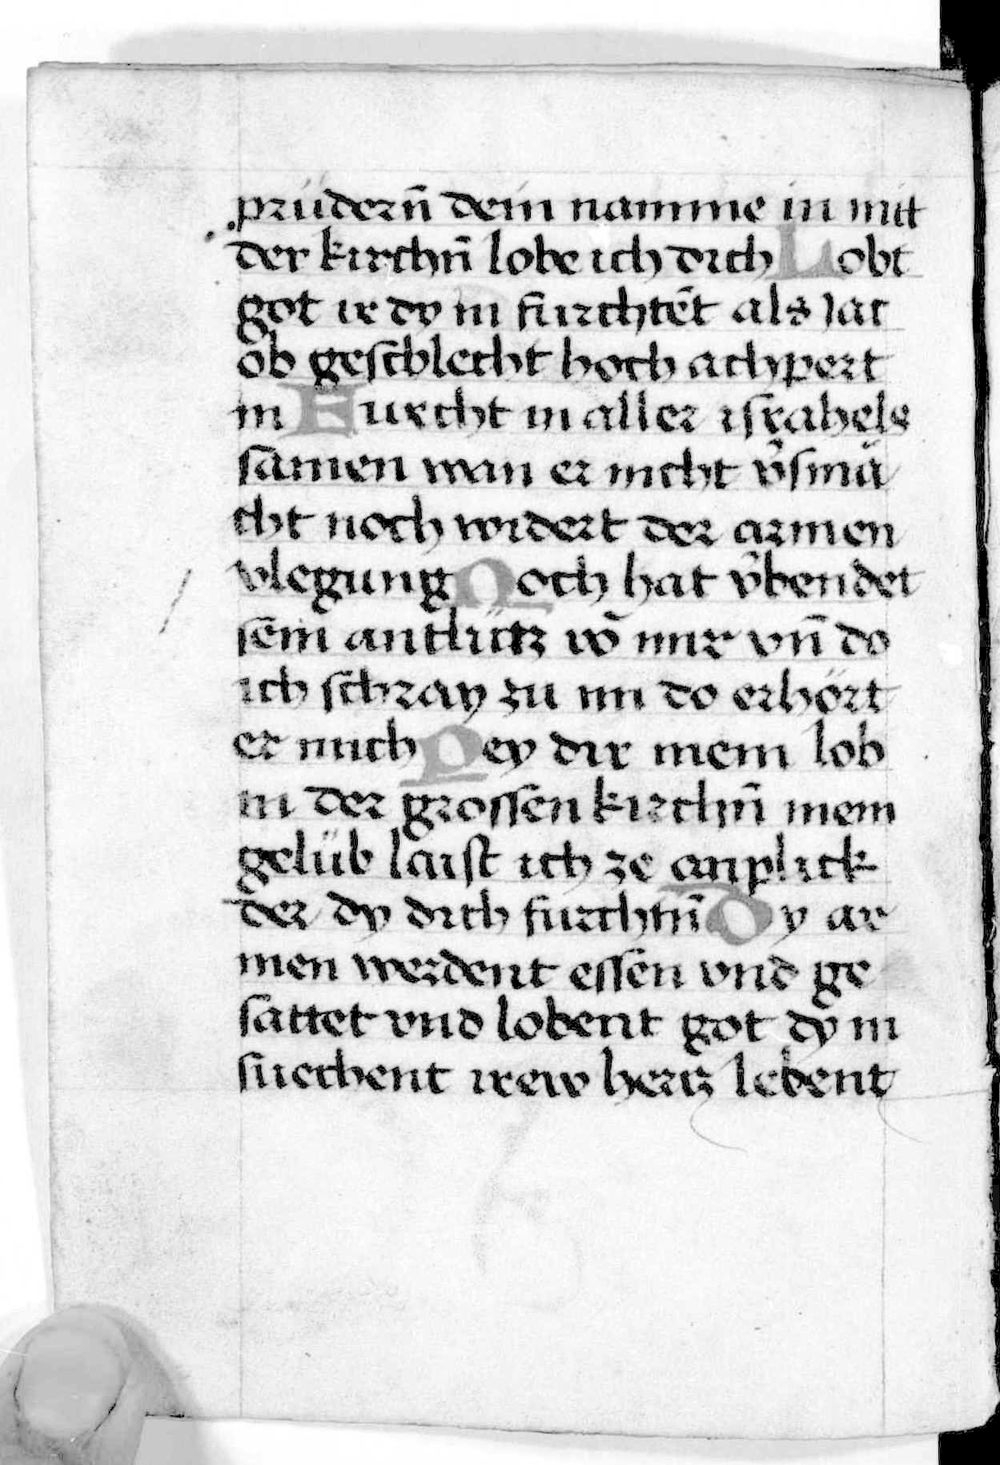 prüdern̄ dein namme in mit
der kirchn̄ lobe ich dich Lobt
got ir dy in fürchtēt als Jac
ob geschlecht hoch achpert
in Furcht in aller israhels
samen wan er nicht v̄smä
cht noch widert der armen
vlegung Noch hat v̄bendet
sein antlütz vō mir vn̄ do
ich schray zu im do erhört
er mich Pey dir mein lob
in der grossen kirchn̄ mein
gelüb laist ich ze anplick
der dy dich furchtn̄ Dy ar
men werdent essen vnd ge
sattet vnd lobent got dy in
suechent irew hertz lebent